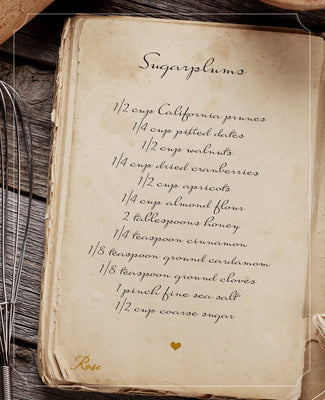 Sugarplums
1/2 cup California prunes
1/4 cup pitted dates
1/2 cup walnuts
1/4 cup dried cranberries
1/2 cup apricots
1/4 cup almond flour
2 tablespoons honey
1/4 teaspoon cinnamon
1/8 teaspoon ground cardamom
1/8 teaspoon ground cloves
1 pinch fine sea salt
1/2 cup coarse sugar
Rose